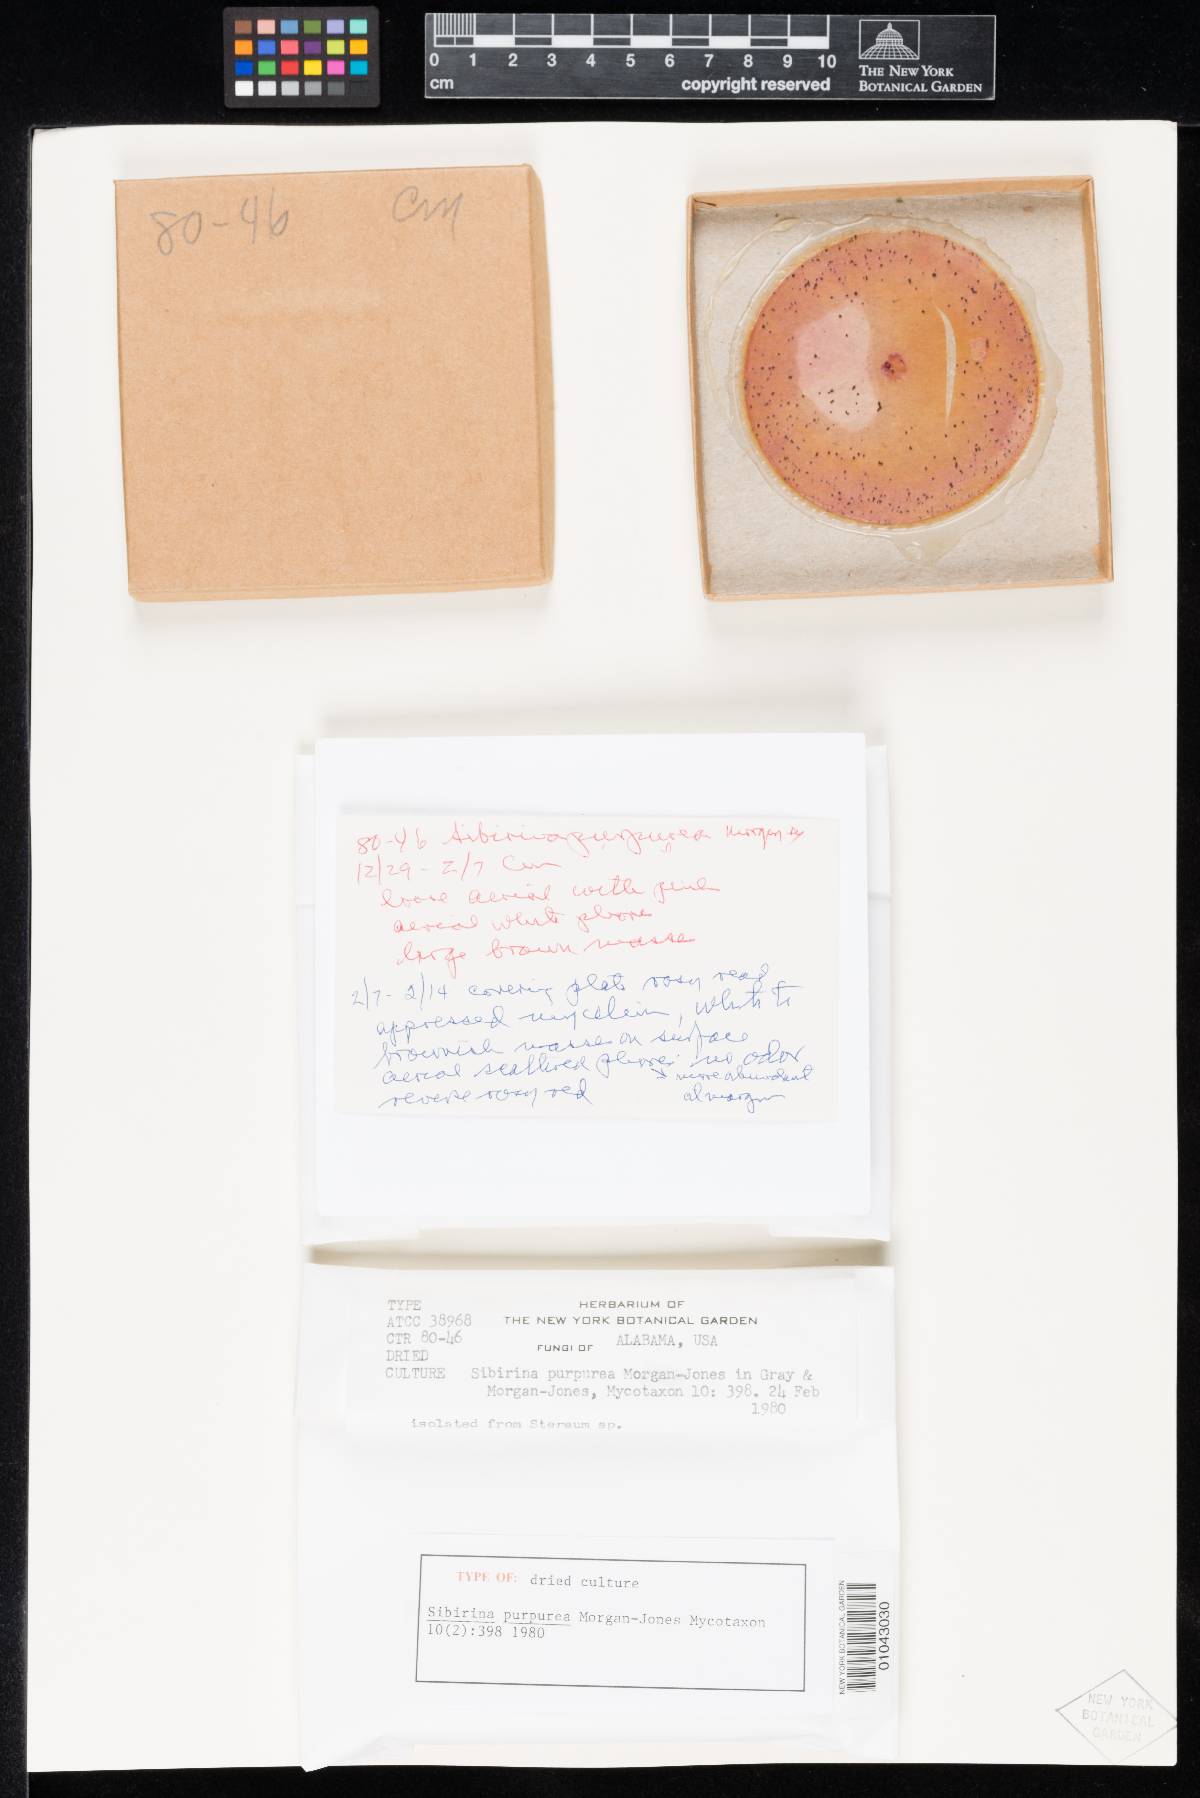 0 1 2 3 4 5 6 7 8 9 10
cm
copyright reserved
THE NEW YORK
BOTANICAL GARDEN
80-46 CM
80-46 Sibirina purpurea Morgan
12/29 - 2/7 Cm
loose aerial with pink
aerial white
large brown masse
2/7 - 2/14 covering plate rosy read
appressed mycelium, white to
brownish masses on surface
aerial scattered no odor
more abundant
reverse rosy red
at margin
TYPE
ATCC 38968
CTR 80-46
DRIED
CULTURE
HERBARIUM OF
THE NEW YORK BOTANICAL GARDEN
FUNGI OF ALABAMA, USA
Sibirina purpurea Morgan-Jones in Gray &
Morgan-Jones, Mycotaxon 10: 398. 24 Feb
1980
isolated from Stereum sp.
TYPE OF: dried culture
Sibirina purpurea Morgan-Jones Mycotaxon
10(2):398 1980
NEW YORK BOTANICAL GARDEN
01043030
NEW YORK
BOTANICAL
GARDEN